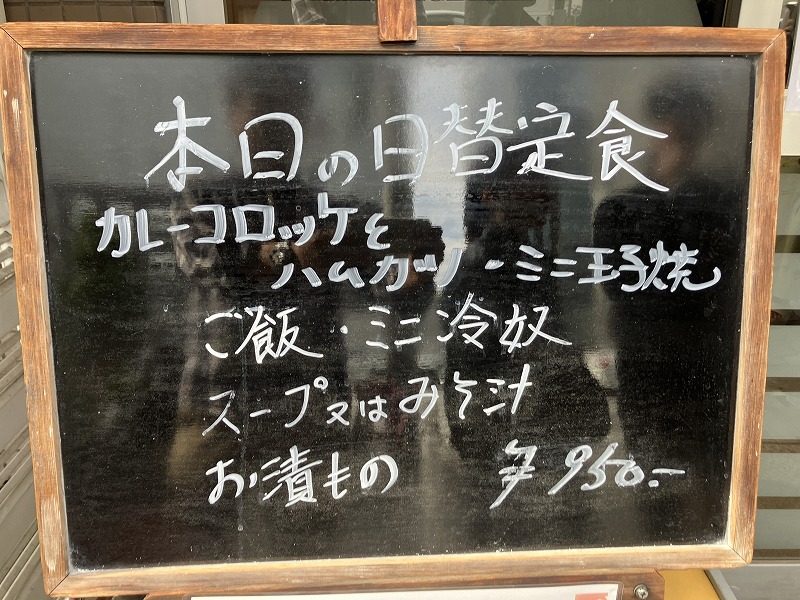 本日の日替定食
カレーコロッケと
ハムカツ・ミニ玉子焼
ご飯・ミニ冷奴
スープ又はみそ汁
お漬もの ¥950.-